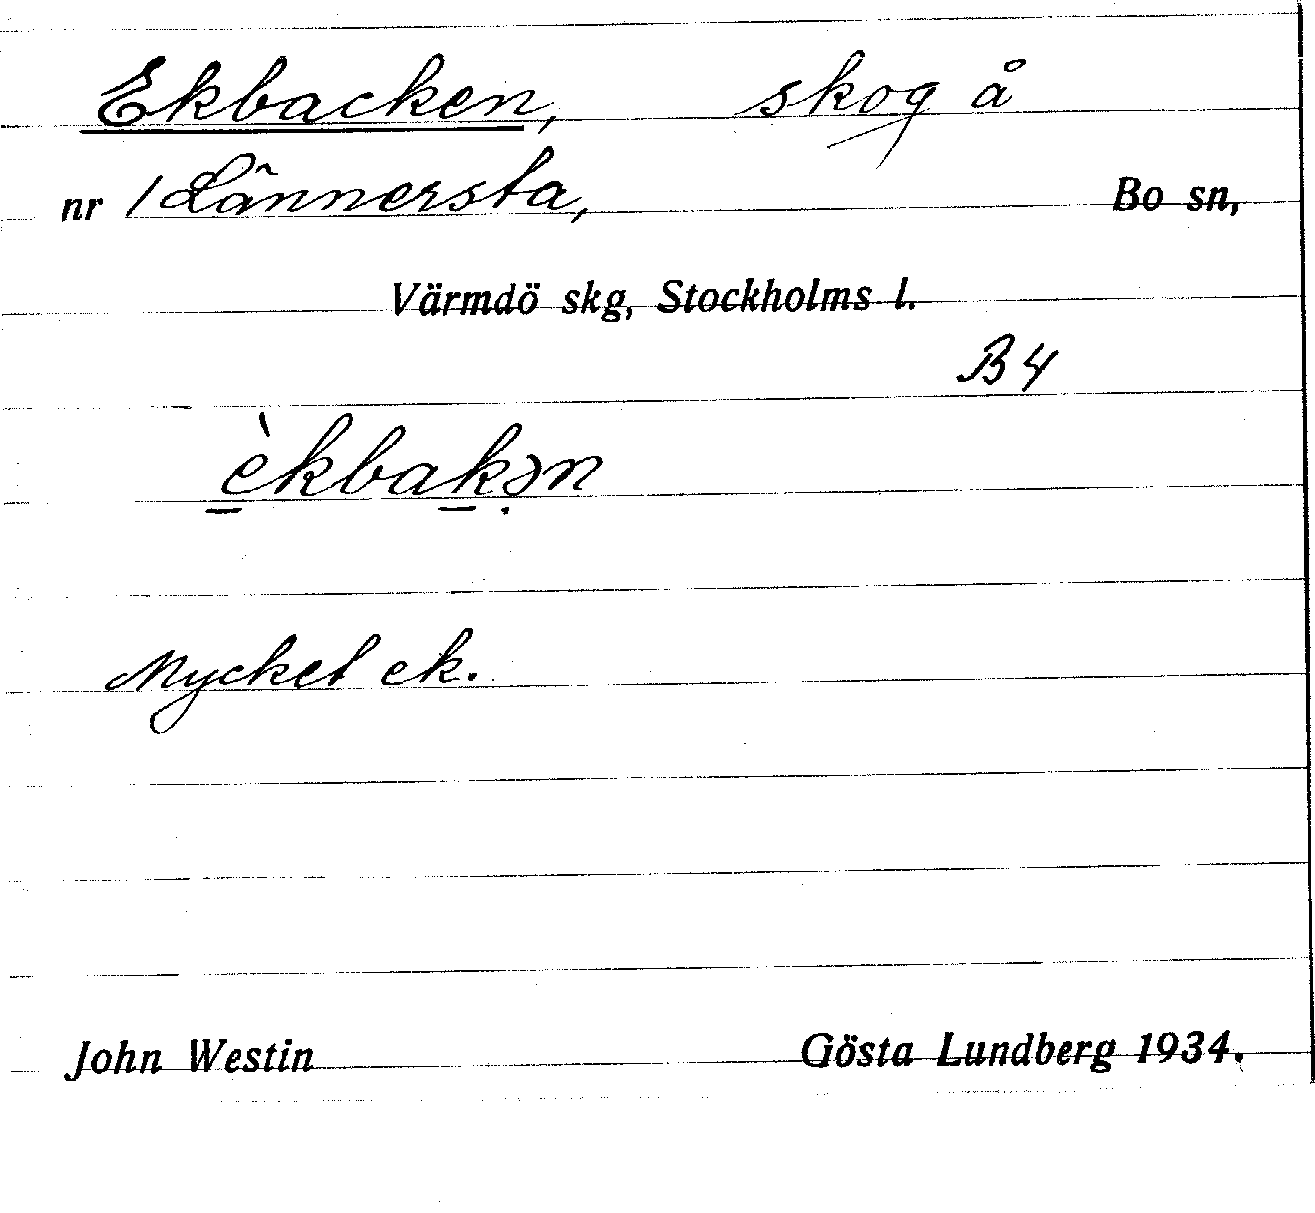 Ekbacken, skog å
nr 1 Lännersta, Bo sn,
Värmdö skg, Stockholms l.
B 4
èkbakən
Mycket ek.
John Westin Gösta Lundberg 1934.